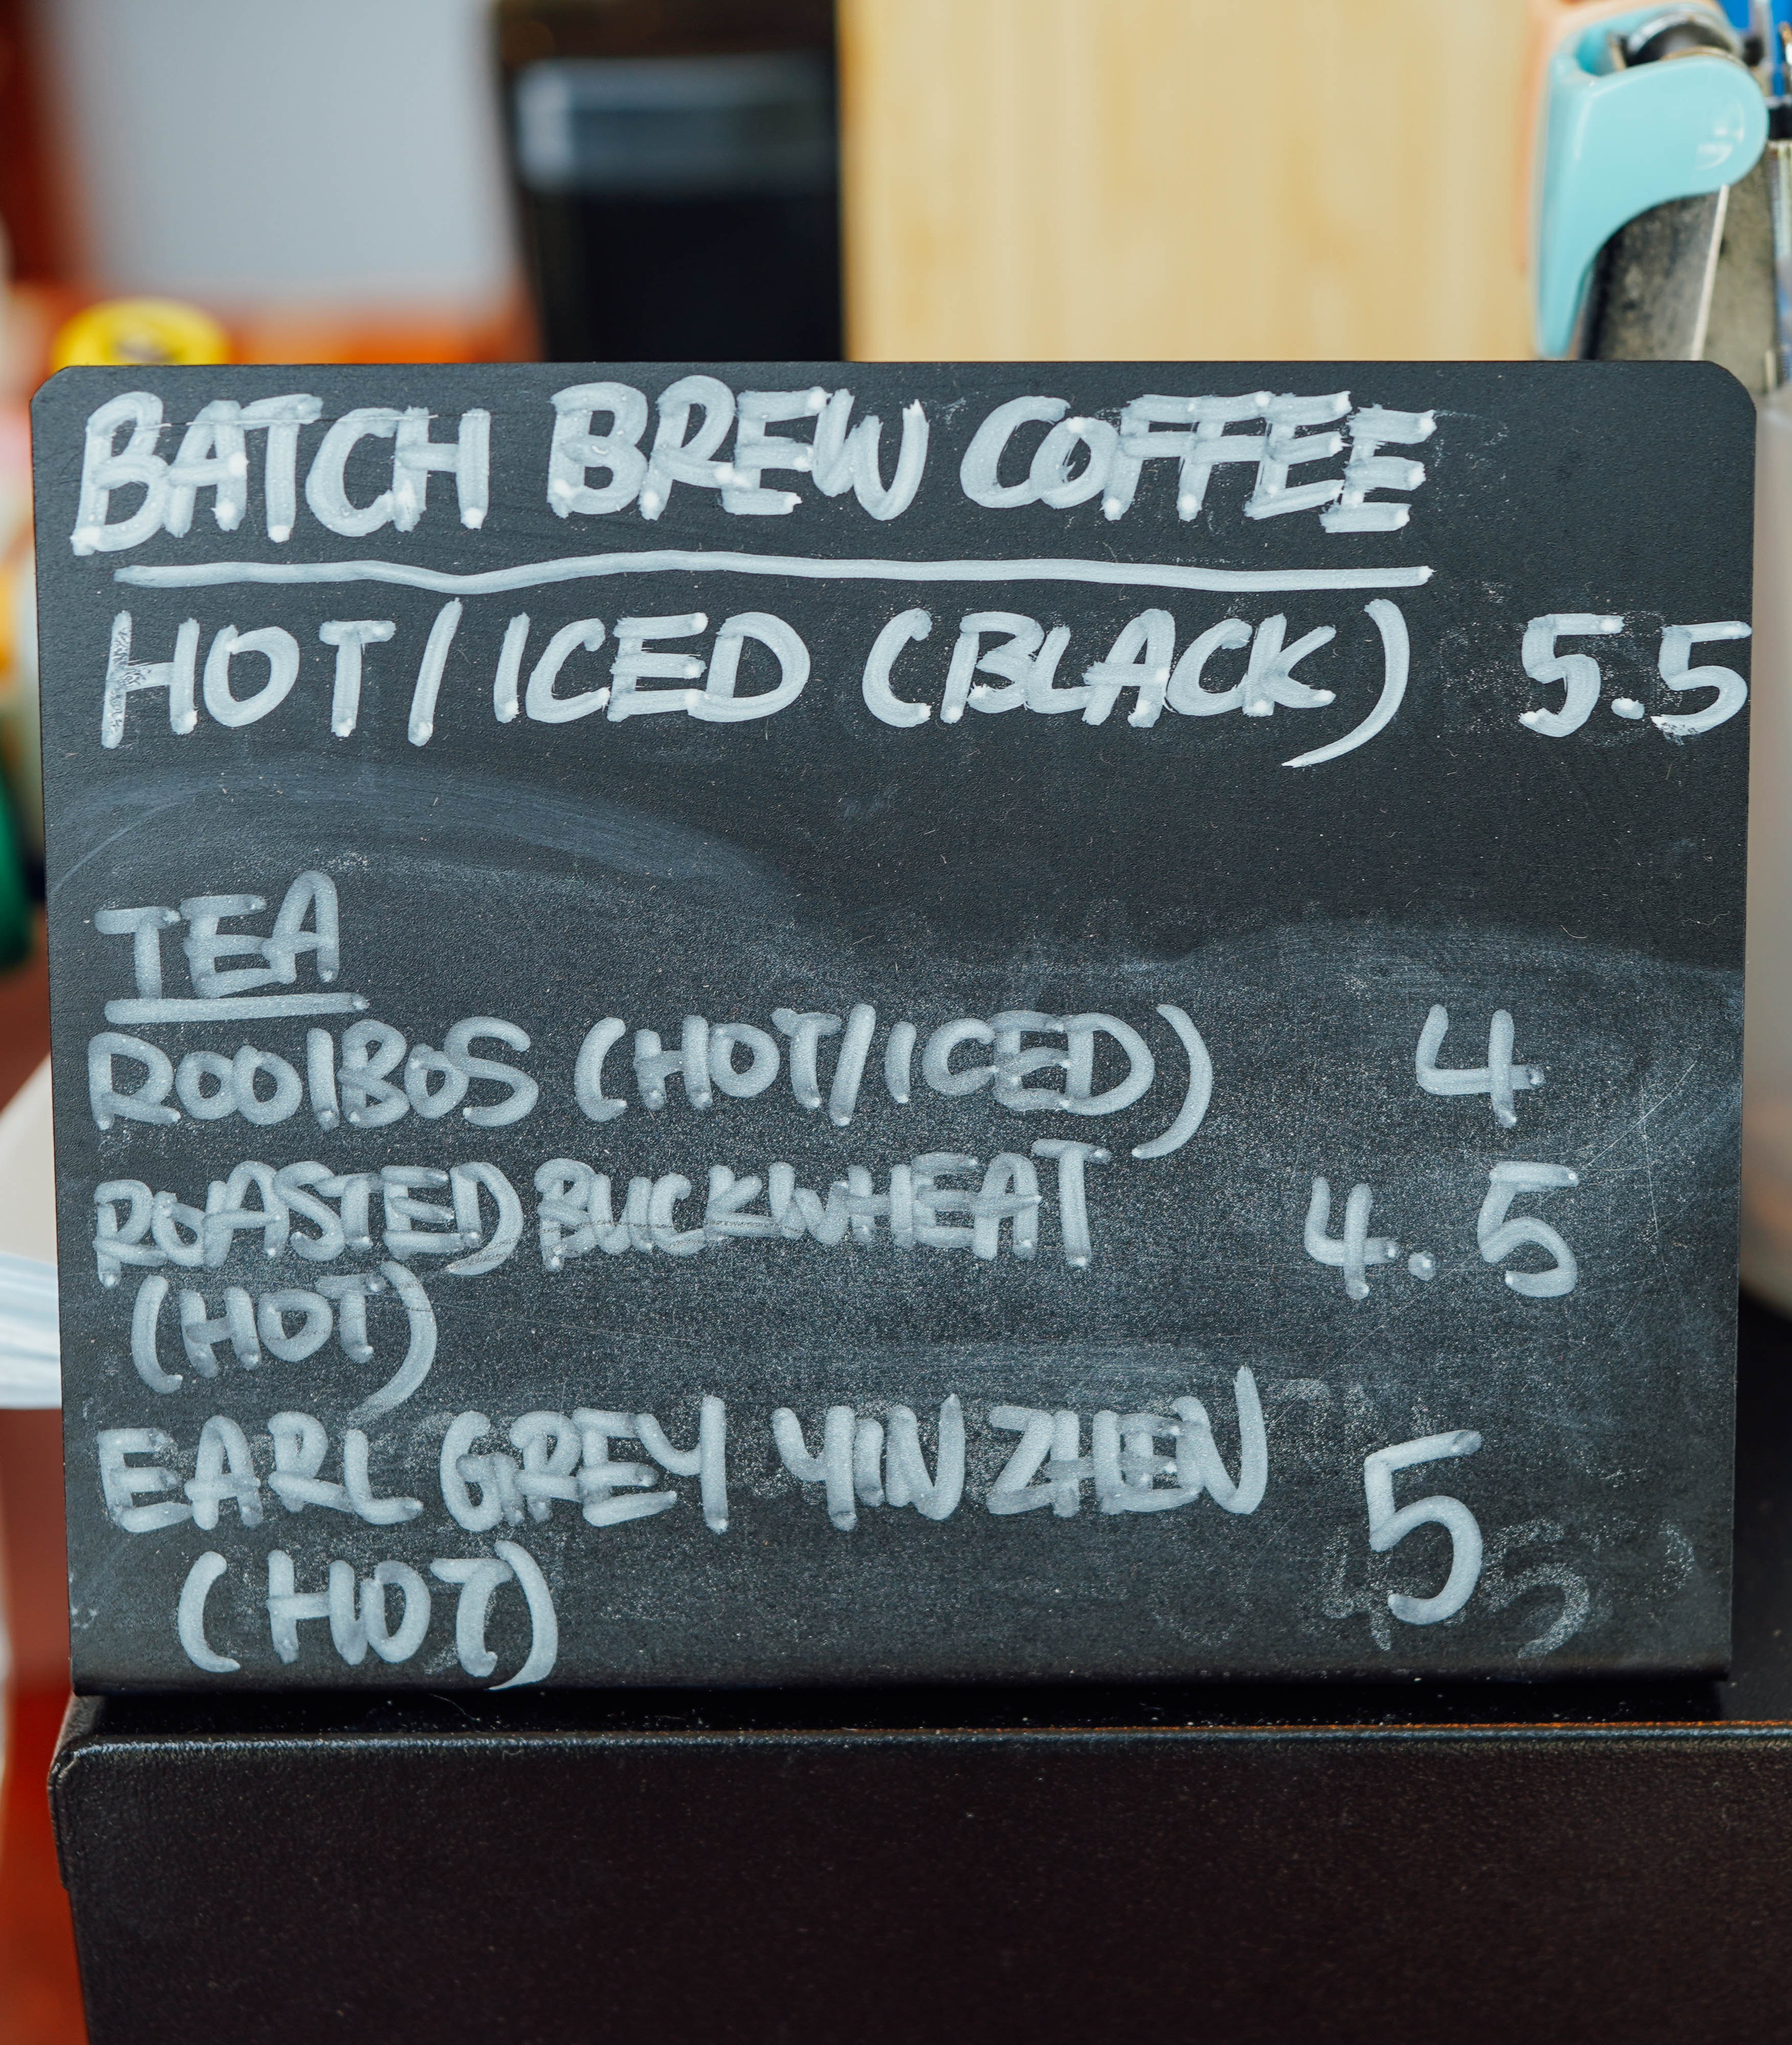 BATCH BREW COFFEE
HOT/ICED (BLACK) 5.5
TEA
ROOIBOS (HOT/ICED) 4
ROASTED BUCKWHEAT 4.5
(HOT)
EARL GREY YIN ZHEN 5
(HOT)